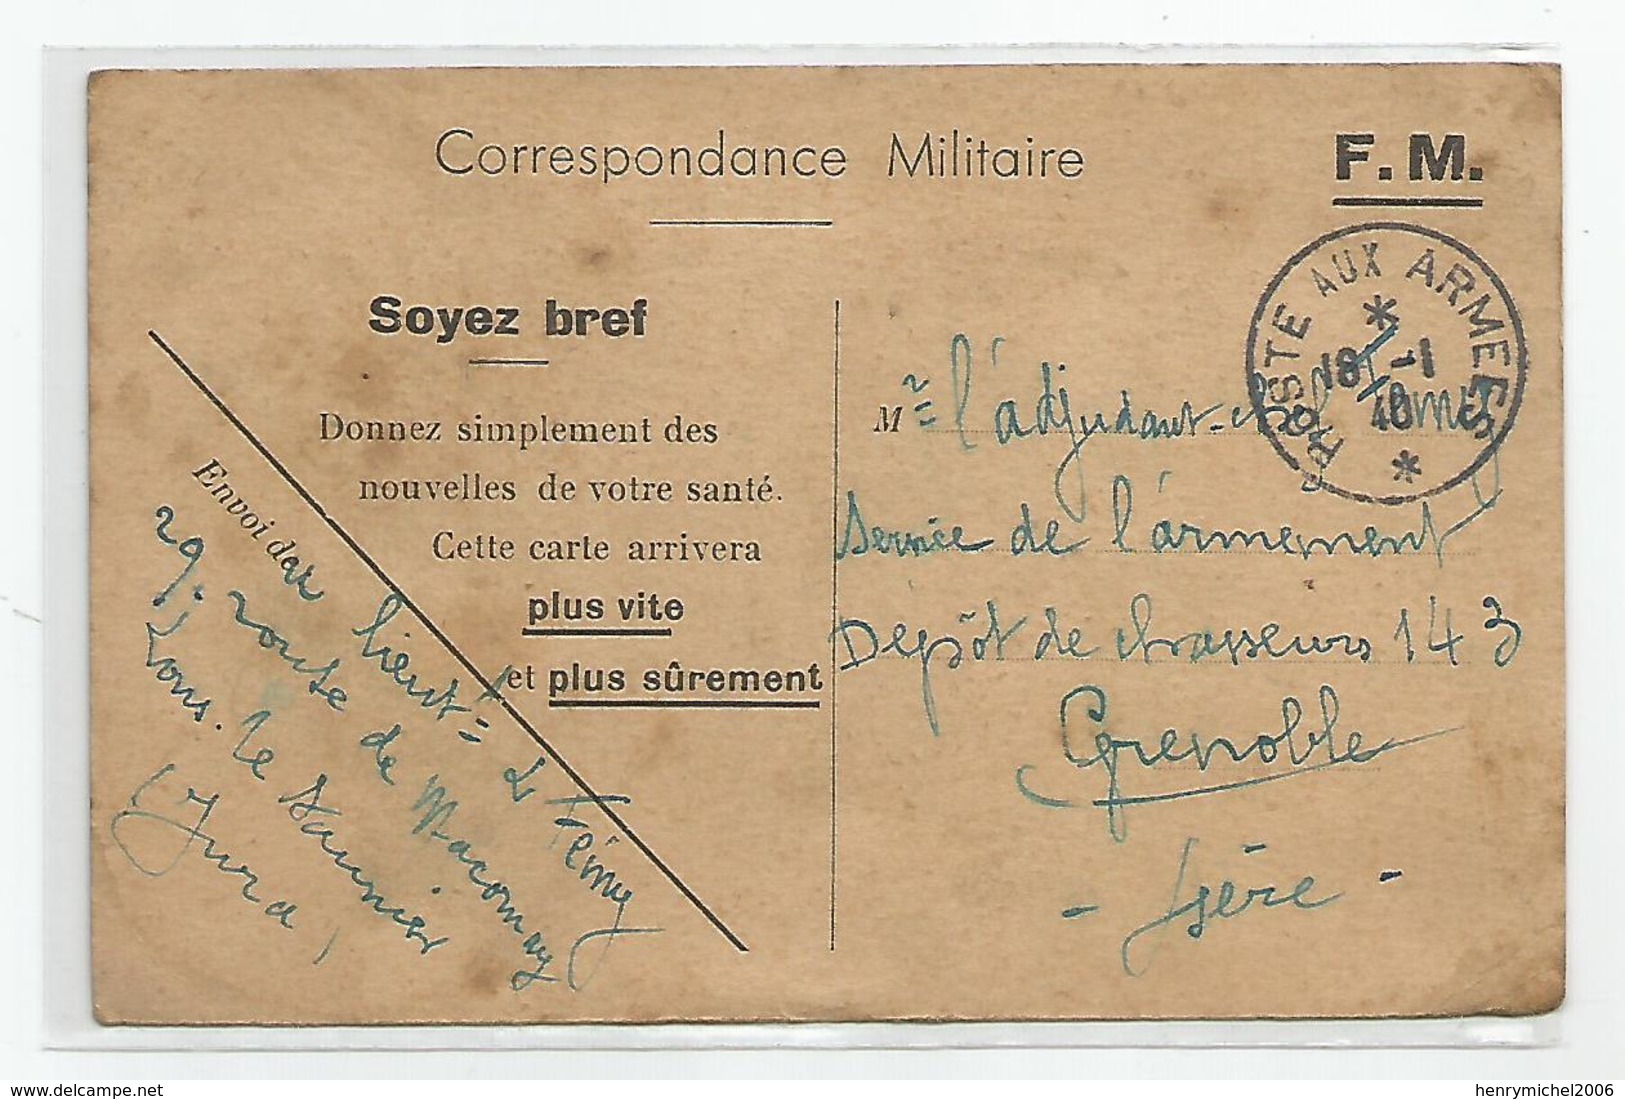 Correspondance Militaire
F. M.
POSTE AUX ARMEES
18 -1
40
Soyez bref
Donnez simplement des
nouvelles de votre santé.
Cette carte arrivera
plus vite
et plus sûrement
Envoi de
lieut=
29, route de Maconnay
Lons. le Saunier
(Jura)
M l'adjudant-chef
Service de l'armement
Dépôt de chasseurs 143
Grenoble
- Isère -
www.delcampe.net
henrymichel2006